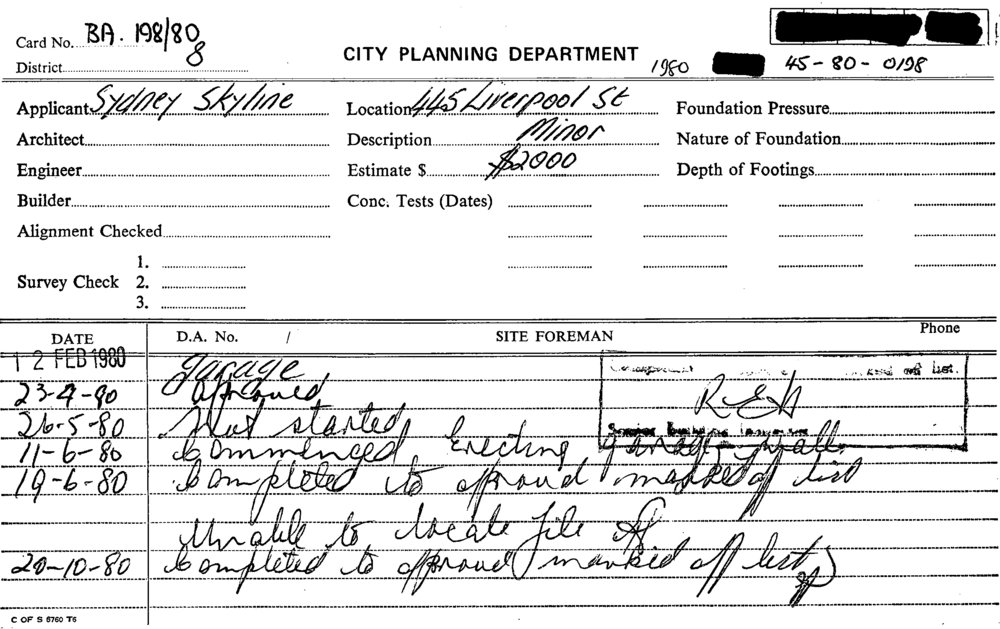 Card No. BA. 198/80
8
District
CITY PLANNING DEPARTMENT
1980 45-80-0198
Applicant Sydney Skyline
Location 445 Liverpool St
Foundation Pressure
Architect
Description Minor
Nature of Foundation
Engineer
Estimate $ $2000
Depth of Footings
Builder
Conc. Tests (Dates)
Alignment Checked
Survey Check 1.
2.
3.
DATE D.A. No. / SITE FOREMAN Phone
12 FEB 1980 garage
off list.
23-4-80 approved
REH
26-5-80 Not started
Senior building
11-6-80 Commenced erecting garage wall
19-6-80 Completed to approud marked off list
Unable to locate file
20-10-80 Completed to approued marked off list
C OF S 6760 T6